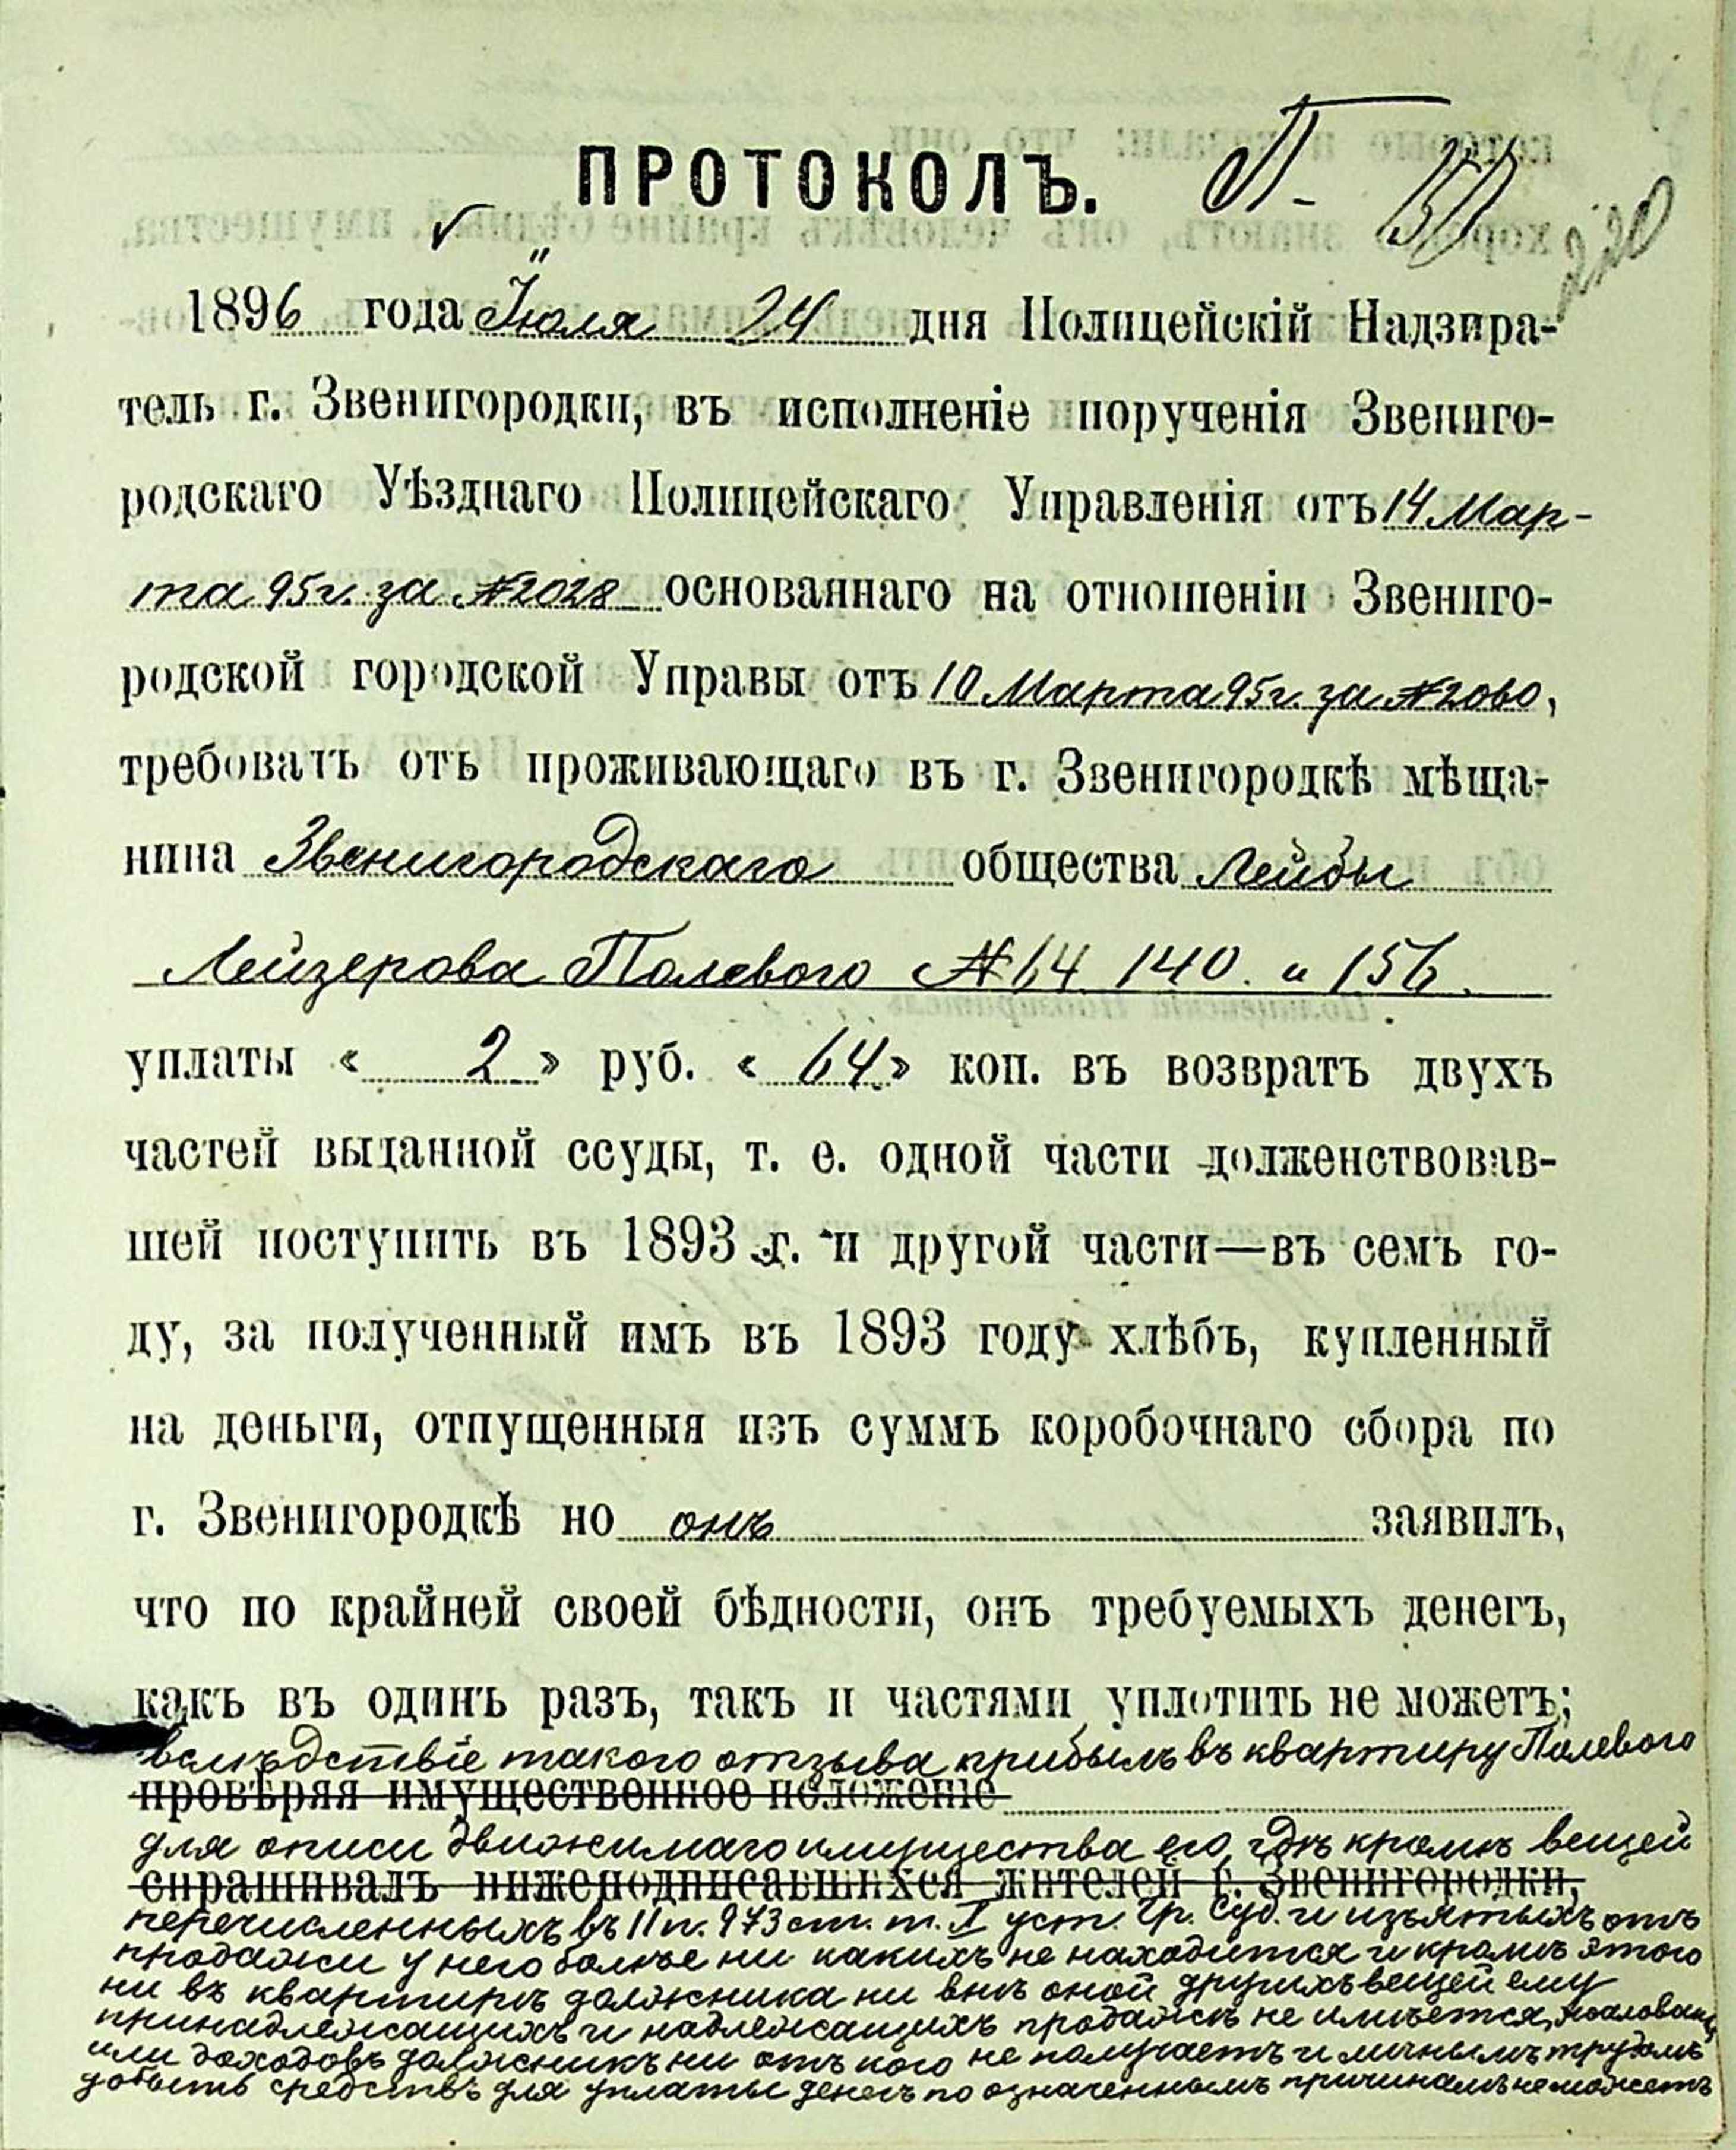 ПРОТОКОЛЪ. П-
220
1896 года Іюля 24 дня Полицейскій Надзира-
тель г. Звенигородки, въ исполненіе порученія Звениго-
родскаго Уѣзднаго Полицейскаго Управленія отъ 14 Мар-
та 95г. за №2028 основаннаго на отношеніи Звениго-
родской городской Управы отъ 10 Марта 95г. за №2060,
требовать отъ проживающаго въ г. Звенигородкѣ мѣща-
нина Звенигородскаго общества Лейбы
Лейзерова Полевого №64 140. и 156.
уплаты « 2 » руб. « 64 » коп. въ возвратъ двухъ
частей выданной ссуды, т. е. одной части долженствовав-
шей поступить въ 1893 г. и другой части—въ семъ го-
ду, за полученный имъ въ 1893 году хлѣбъ, купленный
на деньги, отпущенныя изъ суммъ коробочнаго сбора по
г. Звенигородкѣ но онъ заявилъ,
что по крайней своей бѣдности, онъ требуемыхъ денегъ,
какъ въ одинъ разъ, такъ и частями уплотить не можетъ;
вслѣдствіе такого отзыва прибылъ въ квартиру Полевого
провѣряя имущественное положеніе
для описи движимаго имущества его, гдѣ кромѣ вещей
спрашивалъ нижеподписавшихся жителей г. Звенигородки,
перечисленныхъ въ 11 п. 973 ст. т. X уст. Гр. Суд. и изъятыхъ отъ
продажи у него болѣе ни какихъ не находится и кромѣ этого
ни въ квартирѣ должника ни внѣ оной другихъ вещей ему
принадлежащихъ и надлежащихъ продажѣ не имѣется,
или доходовъ должникъ ни отъ кого не получаетъ и личнымъ трудомъ
добыть средствъ для уплаты денегъ по означеннымъ причинамъ не можетъ